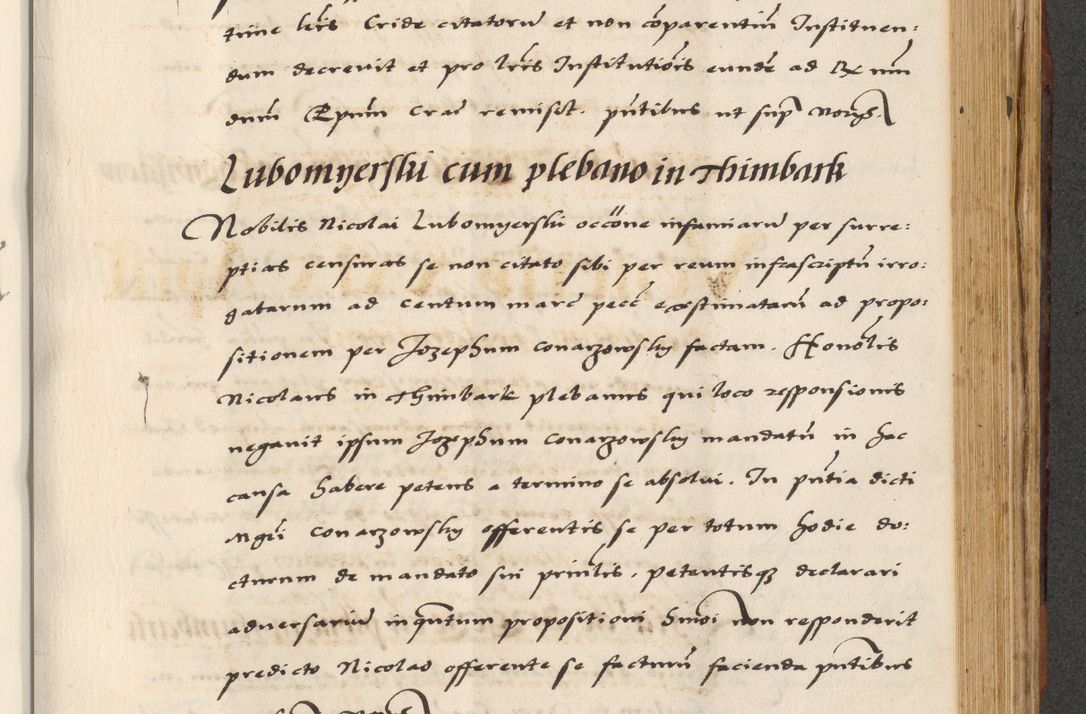 tune lr̃is Cride citatorũ et non cõparentiũ Instituen:
dum decrevit et pro lr̃is Institutiõis eundẽ ad Rx mũ
dnũ Epũm Crač remisit. pñtibus ut sup̃ noris.
Lubomyerski cum plebano in Thimbark
Nobilis Nicolai Lubomyerski occõne infamiarũ per surre:
ptias censuras se non citato sibi per reum infrascriptũ irro:
gatarum ad centum marč pecč exstimatarũ ad propo:
sitionem per Jozephum conarzowsky factam. Honõlis
Nicolaus in Thimbark plebanus qui loco responsionis
negavit ipsum Jozephum conarzowsky mandatũ in hac
causa habere petens a termino se absolvi. In pñtia dicti
Mgr̃i Conarzowsky offerentis se per totum hodie do:
cturum de mandato sui prinĩlis. petentisqz declarari
adversariũ inqñtum propositioni hmõi non responderit
predicto Nicolao offerente se facturũ facienda pñtibus